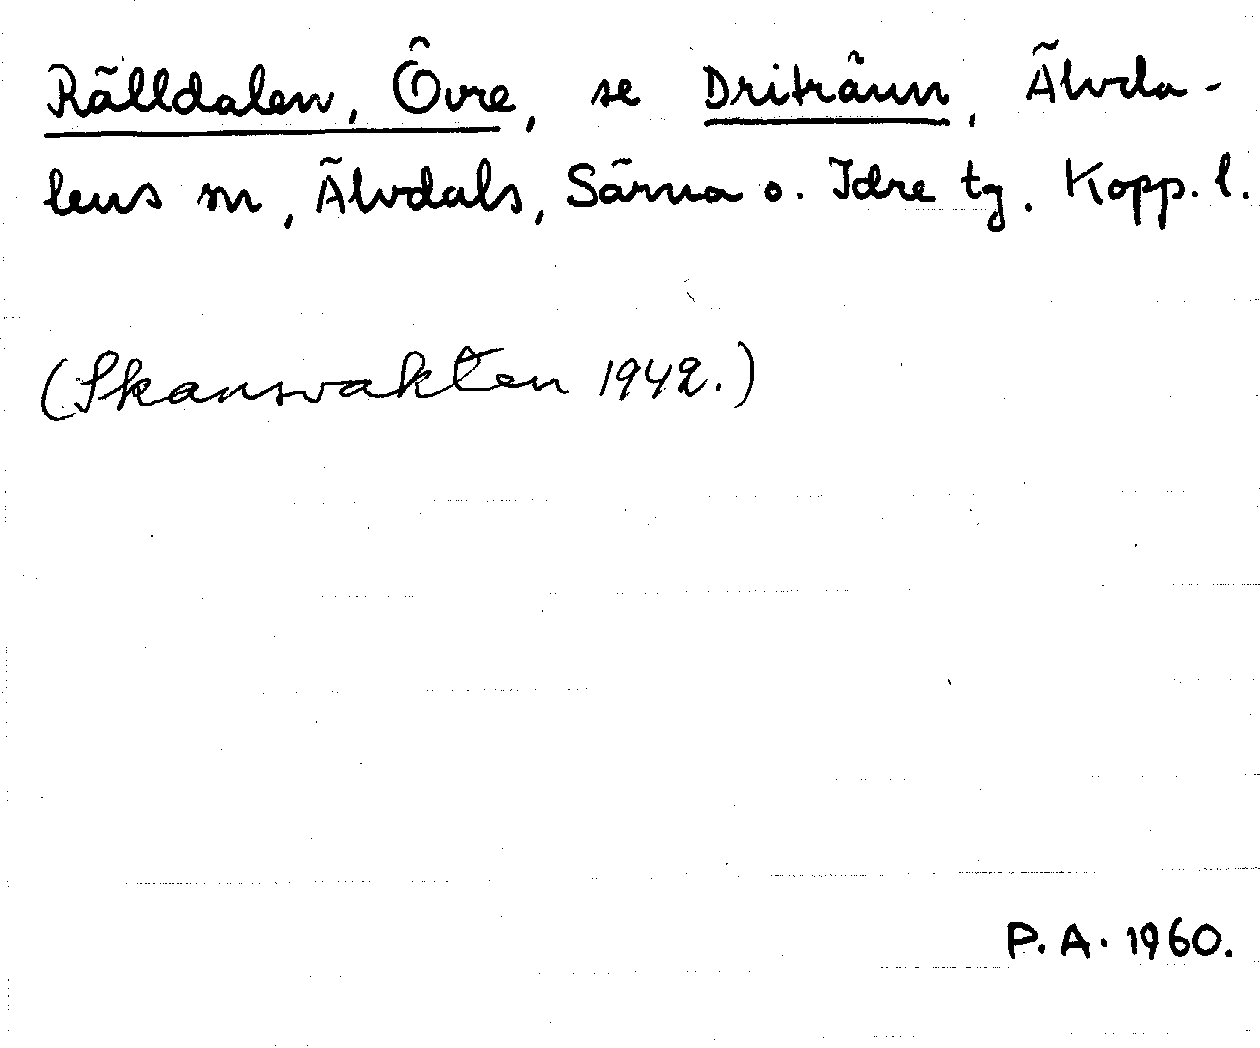 Rälldalen, Övre, se Driträun, Älvda-
lens m, Älvdals, Särna o. Idre tg. Kopp. l.
(Skansvakten 1942.)
P. A. 1960.